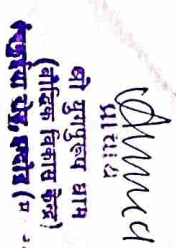 प्राचार्य
श्री युगपुरुष धाम
(बौद्धिक विकास केन्द्र)
पंचकुईया रोड, इन्दौर (म